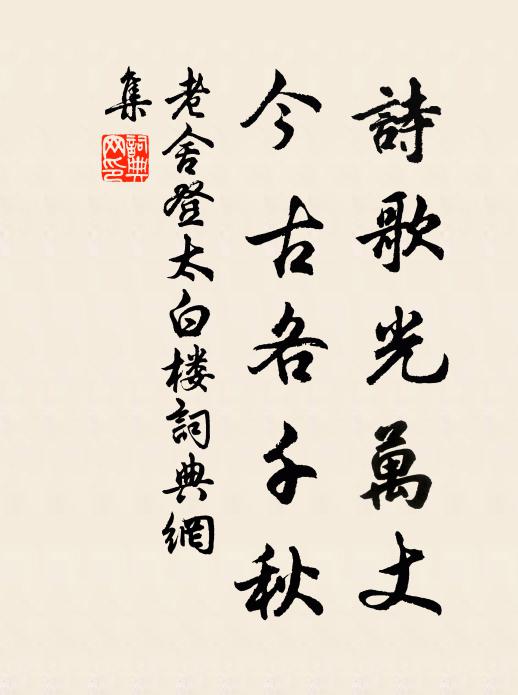 詩歌光萬丈
今古各千秋
老舍登太白楼詞典網
集
詞典網印